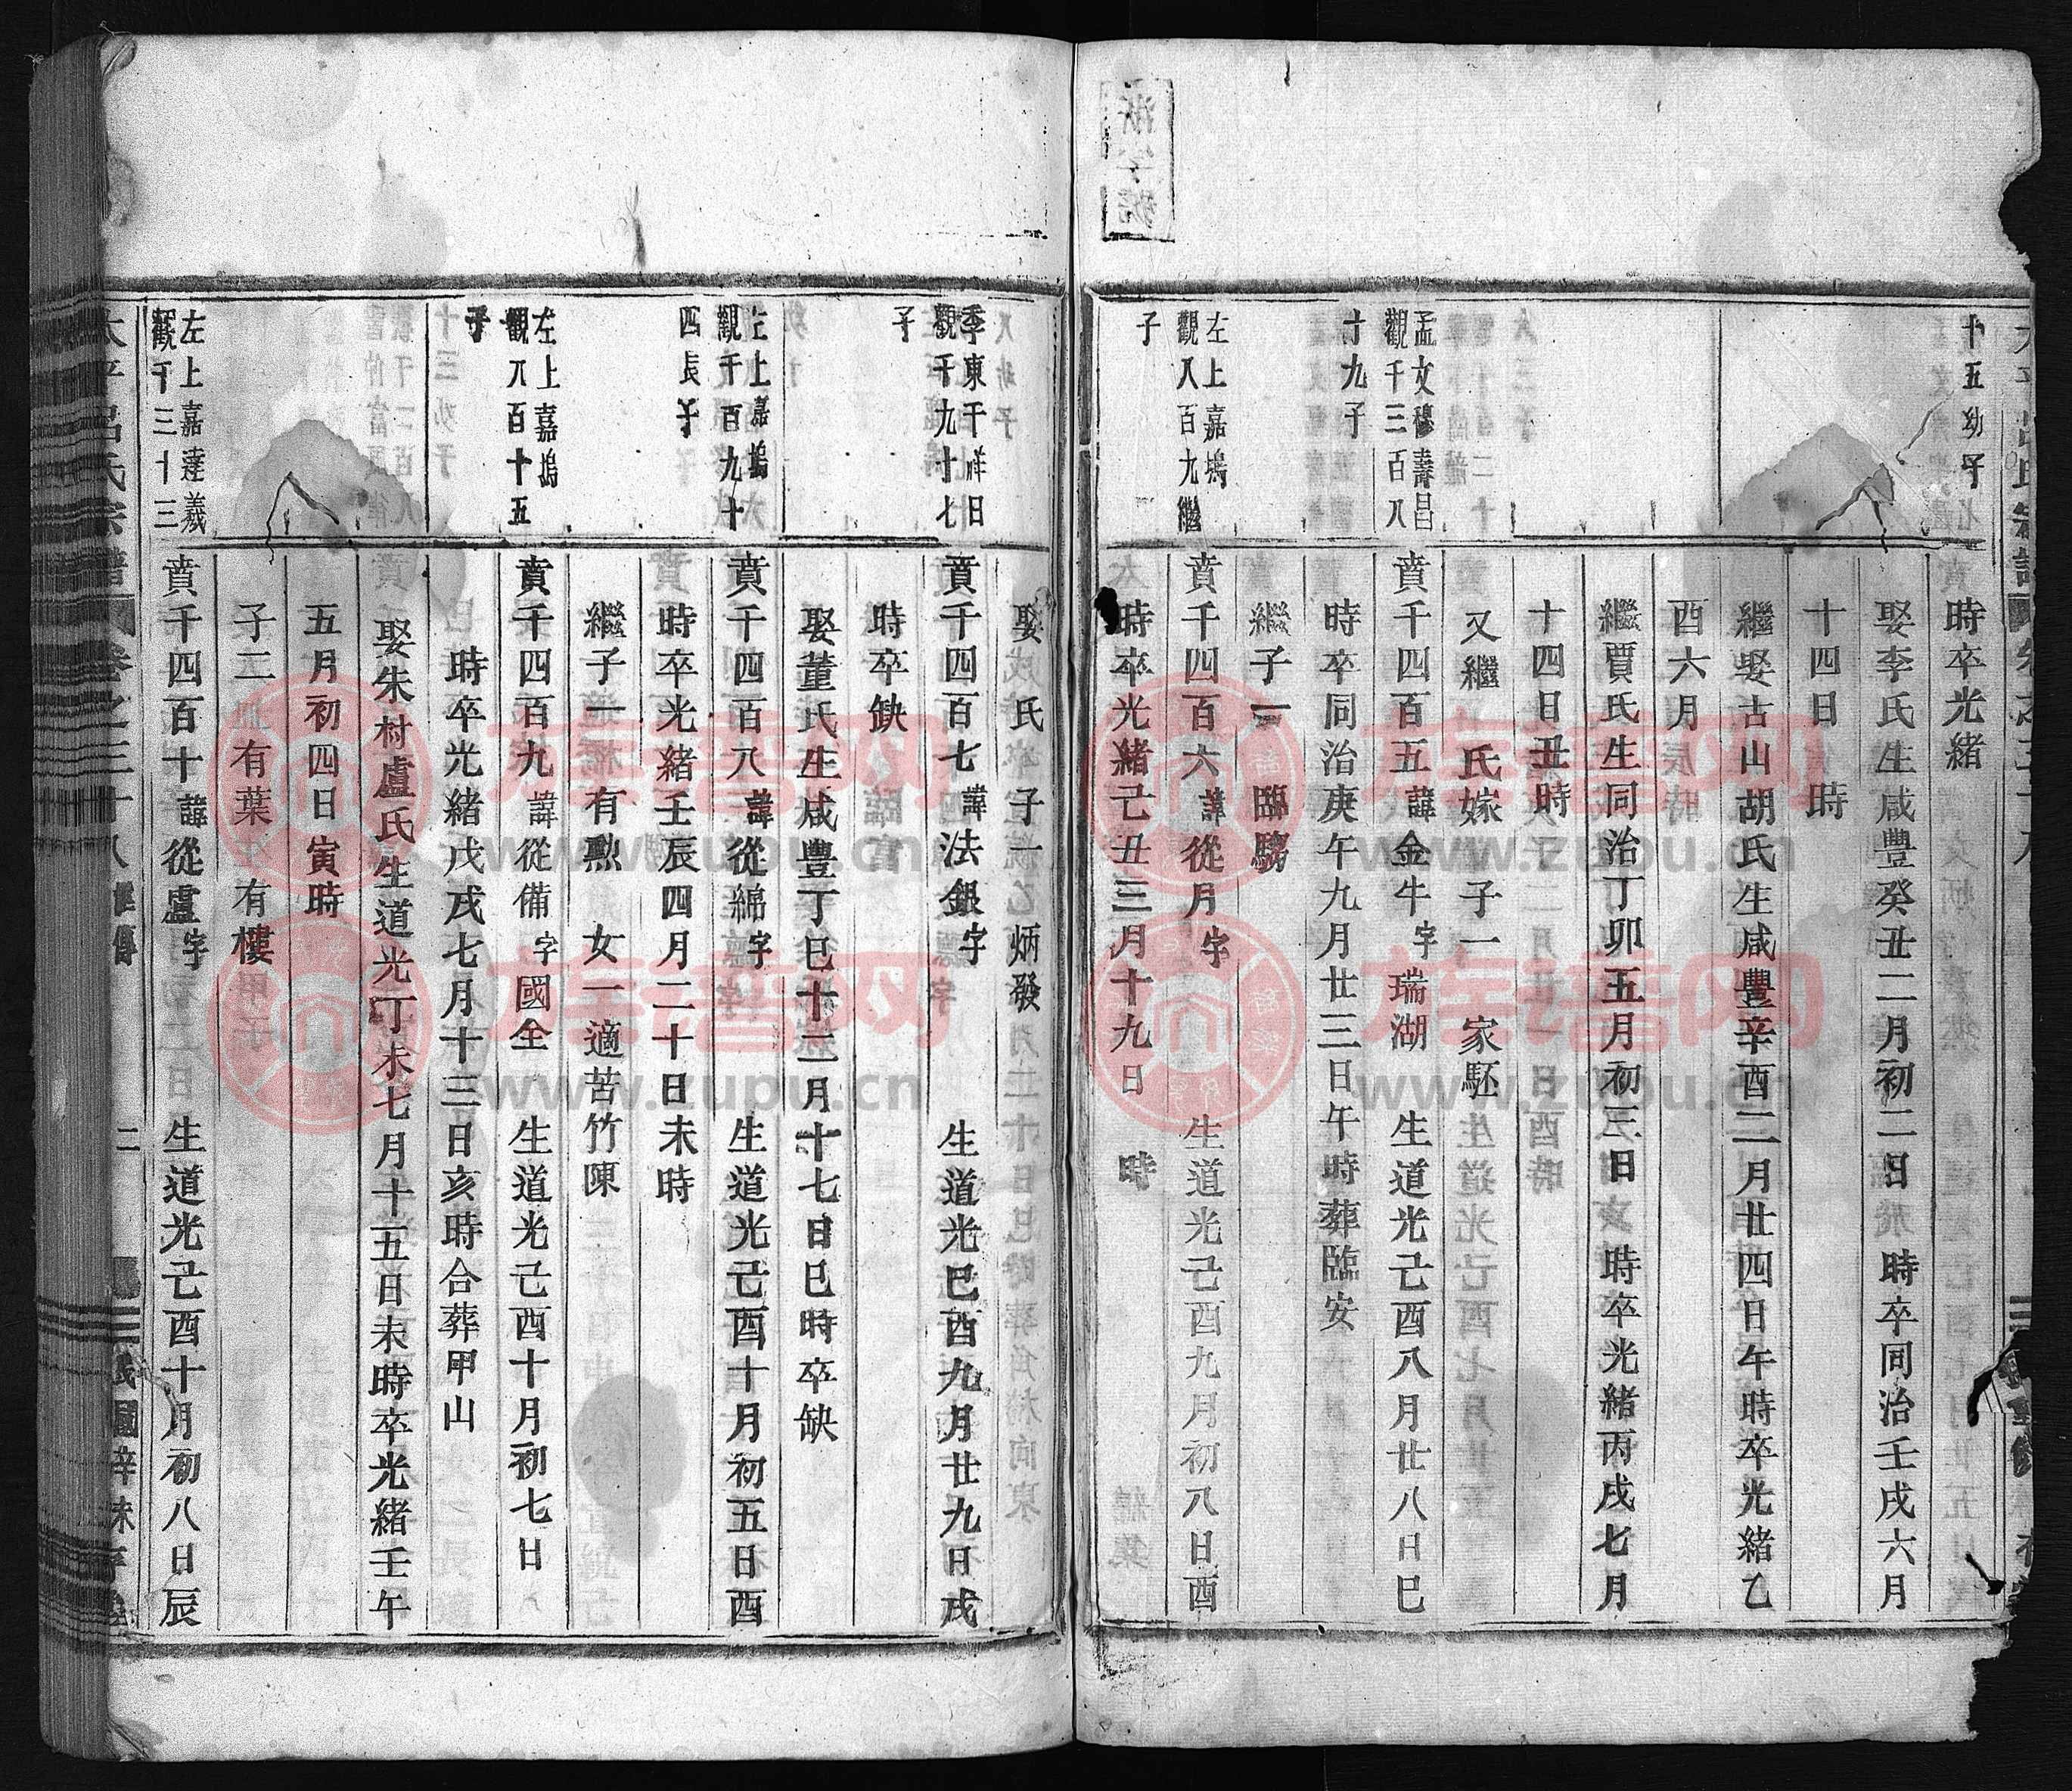 十五幼子
時卒光緒
娶李氏生咸豐癸丑二月初二日　時卒同治壬戌六月
十四日　時
繼娶古山胡氏生咸豐辛酉二月廿四日午時卒光緒乙
酉六月
繼賈氏生同治丁卯五月初三日　時卒光緒丙戌七月
十四日丑時
又繼　氏嫁　子一　家駓
孟文穆壽昌
觀千三百八
十九子
賁千四百五諱金牛字瑞湖　生道光己酉八月廿八日巳
時卒同治庚午九月廿三日午時葬臨安
繼子一　臨騶
左上嘉塢
觀八百九繼
子
賁千四百六諱從月字　生道光己酉九月初八日酉
時卒光緒己丑三月十九日　時
娶　氏　子一　炳發
季東千祥日
觀千九十七
子
賁千四百七諱法銀字　生道光己酉九月廿九日戌
時卒缺
娶董氏生咸豐丁巳十二月十七日巳時卒缺
左上嘉塢
觀千一百九十
四長子
賁千四百八諱從綿字　生道光己酉十月初五日酉
時卒光緒壬辰四月二十日未時
繼子一　有勲　女一適苦竹陳
左上嘉塢
觀八百十五
子
賁千四百九諱從備字國全　生道光己酉十月初七日
時卒光緒戊戌七月十三日亥時合葬甲山
娶朱村盧氏生道光丁未七月十五日未時卒光緒壬午
五月初四日寅時
子二　有葉　有樓
左上嘉達義
觀千三十三
賁千四百十諱從盧字　生道光己酉十月初八日辰
太平呂氏宗譜　卷之三十八　世傳　二　民國辛未
族譜网
www.zupu.cn
族譜网
www.zupu.cn
族譜网
www.zupu.cn
族譜网
www.zupu.cn